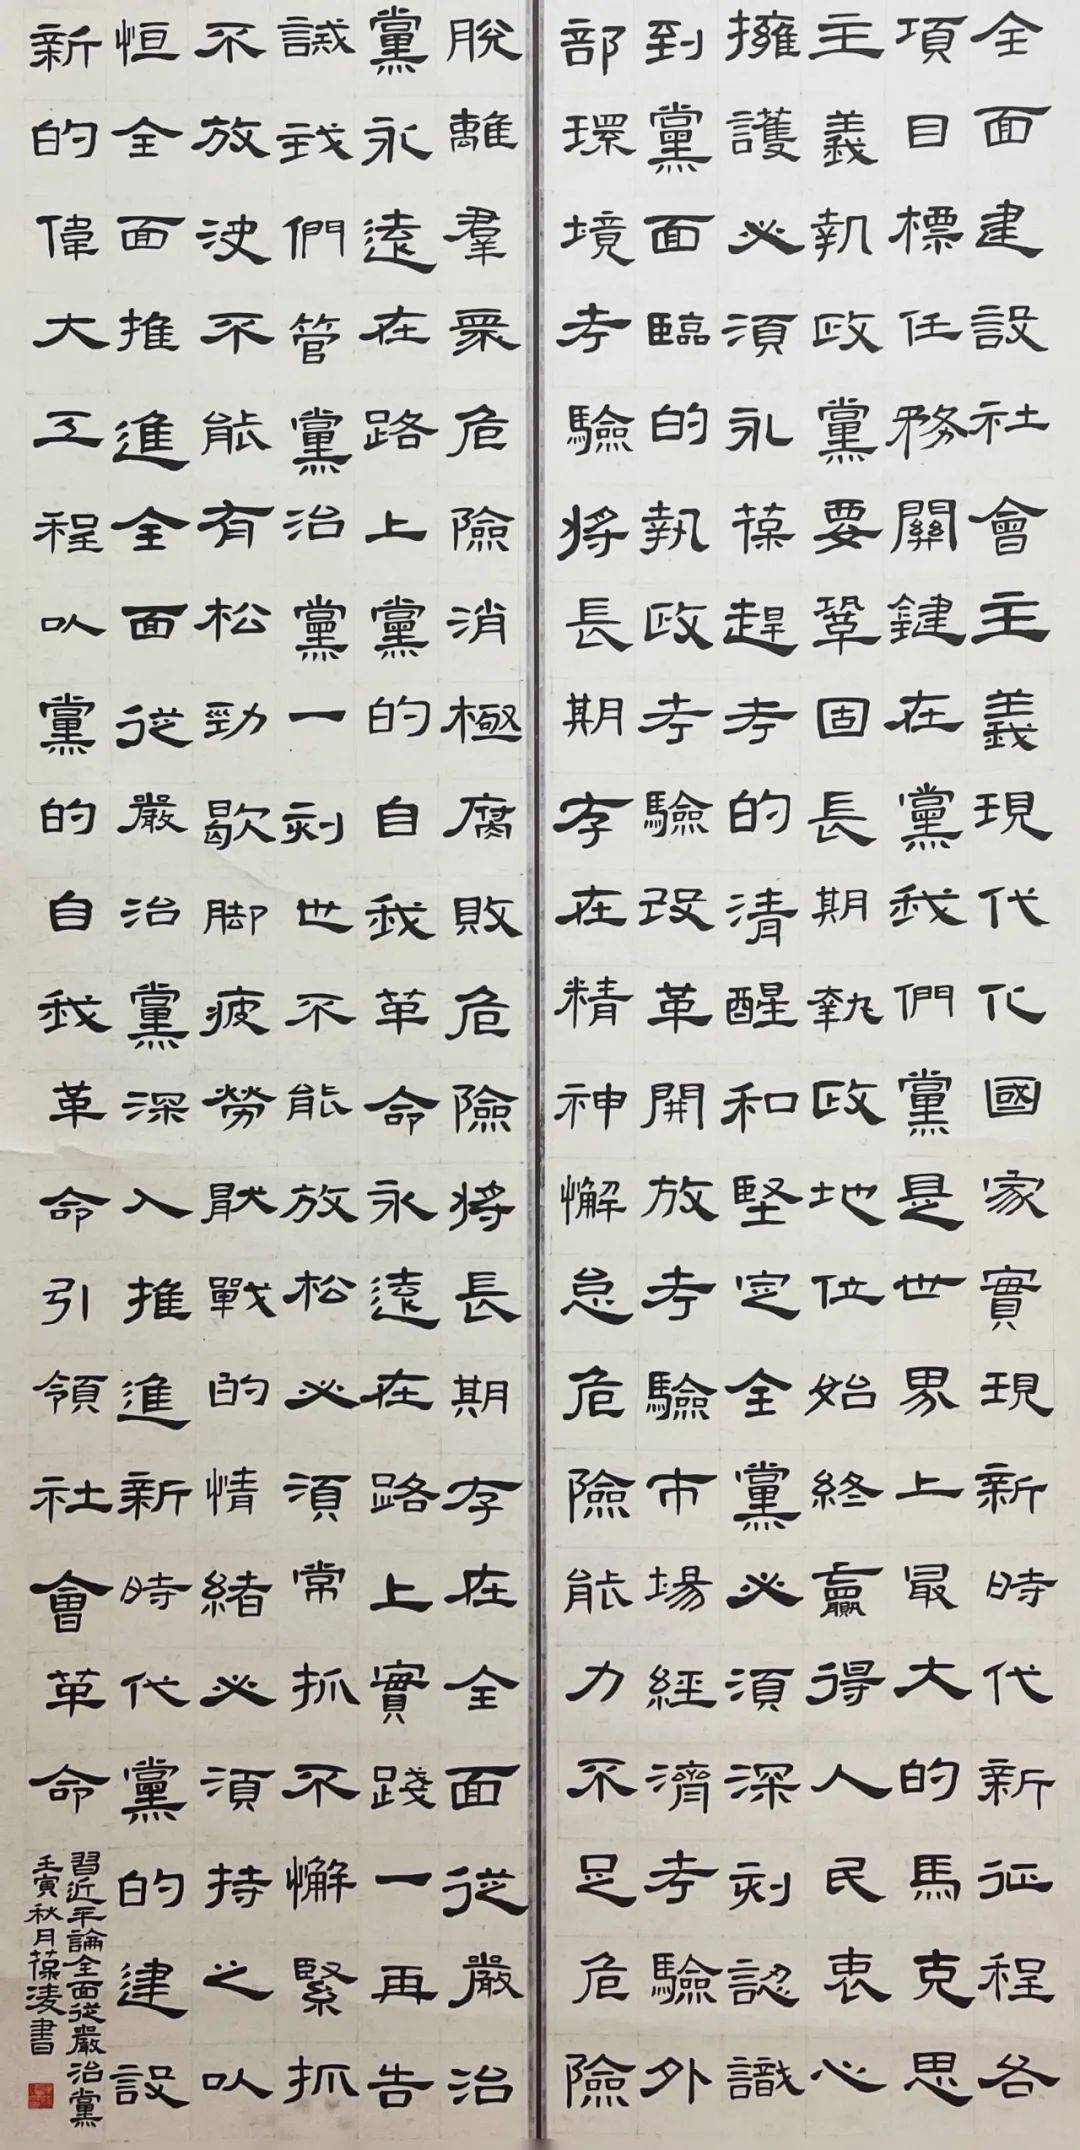 全面建設社會主義現代化國家實現新時代新征程各
項目標任務關鍵在黨我們黨是世界上最大的馬克思
主義執政黨要鞏固長期執政地位始終贏得人民衷心
擁護必須永葆趕考的清醒和堅定全黨必須深刻認識
到黨面臨的執政考驗改革開放考驗市場經濟考驗外
部環境考驗將長期存在精神懈怠危險能力不足危險
脫離羣眾危險消極腐敗危險將長期存在全面從嚴治
黨永遠在路上黨的自我革命永遠在路上實踐一再告
誡我們管黨治黨一刻也不能放松必須常抓不懈緊抓
不放決不能有松勁歇脚疲勞猒戰的情緒必須持之以
恒全面推進全面從嚴治黨深入推進新時代黨的建設
新的偉大工程以黨的自我革命引領社會革命
習近平論全面從嚴治黨
壬寅秋月葆淩書